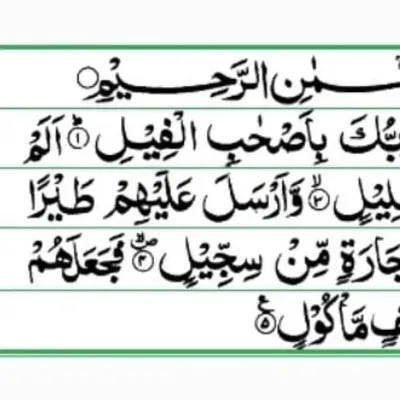 ـمٰنِ الرَّحِـيْمِ
بُّكَ بِاَصْحٰبِ الْفِيْلِ ۝۱ اَلَمْ
لِيْلٍ ۝۲ وَّاَرْسَلَ عَلَيْهِمْ طَيْرًا
جَارَةٍ مِّنْ سِجِّيْلٍ ۝۴ فَجَعَلَهُمْ
فٍ مَّاْكُوْلٍ ۝۵